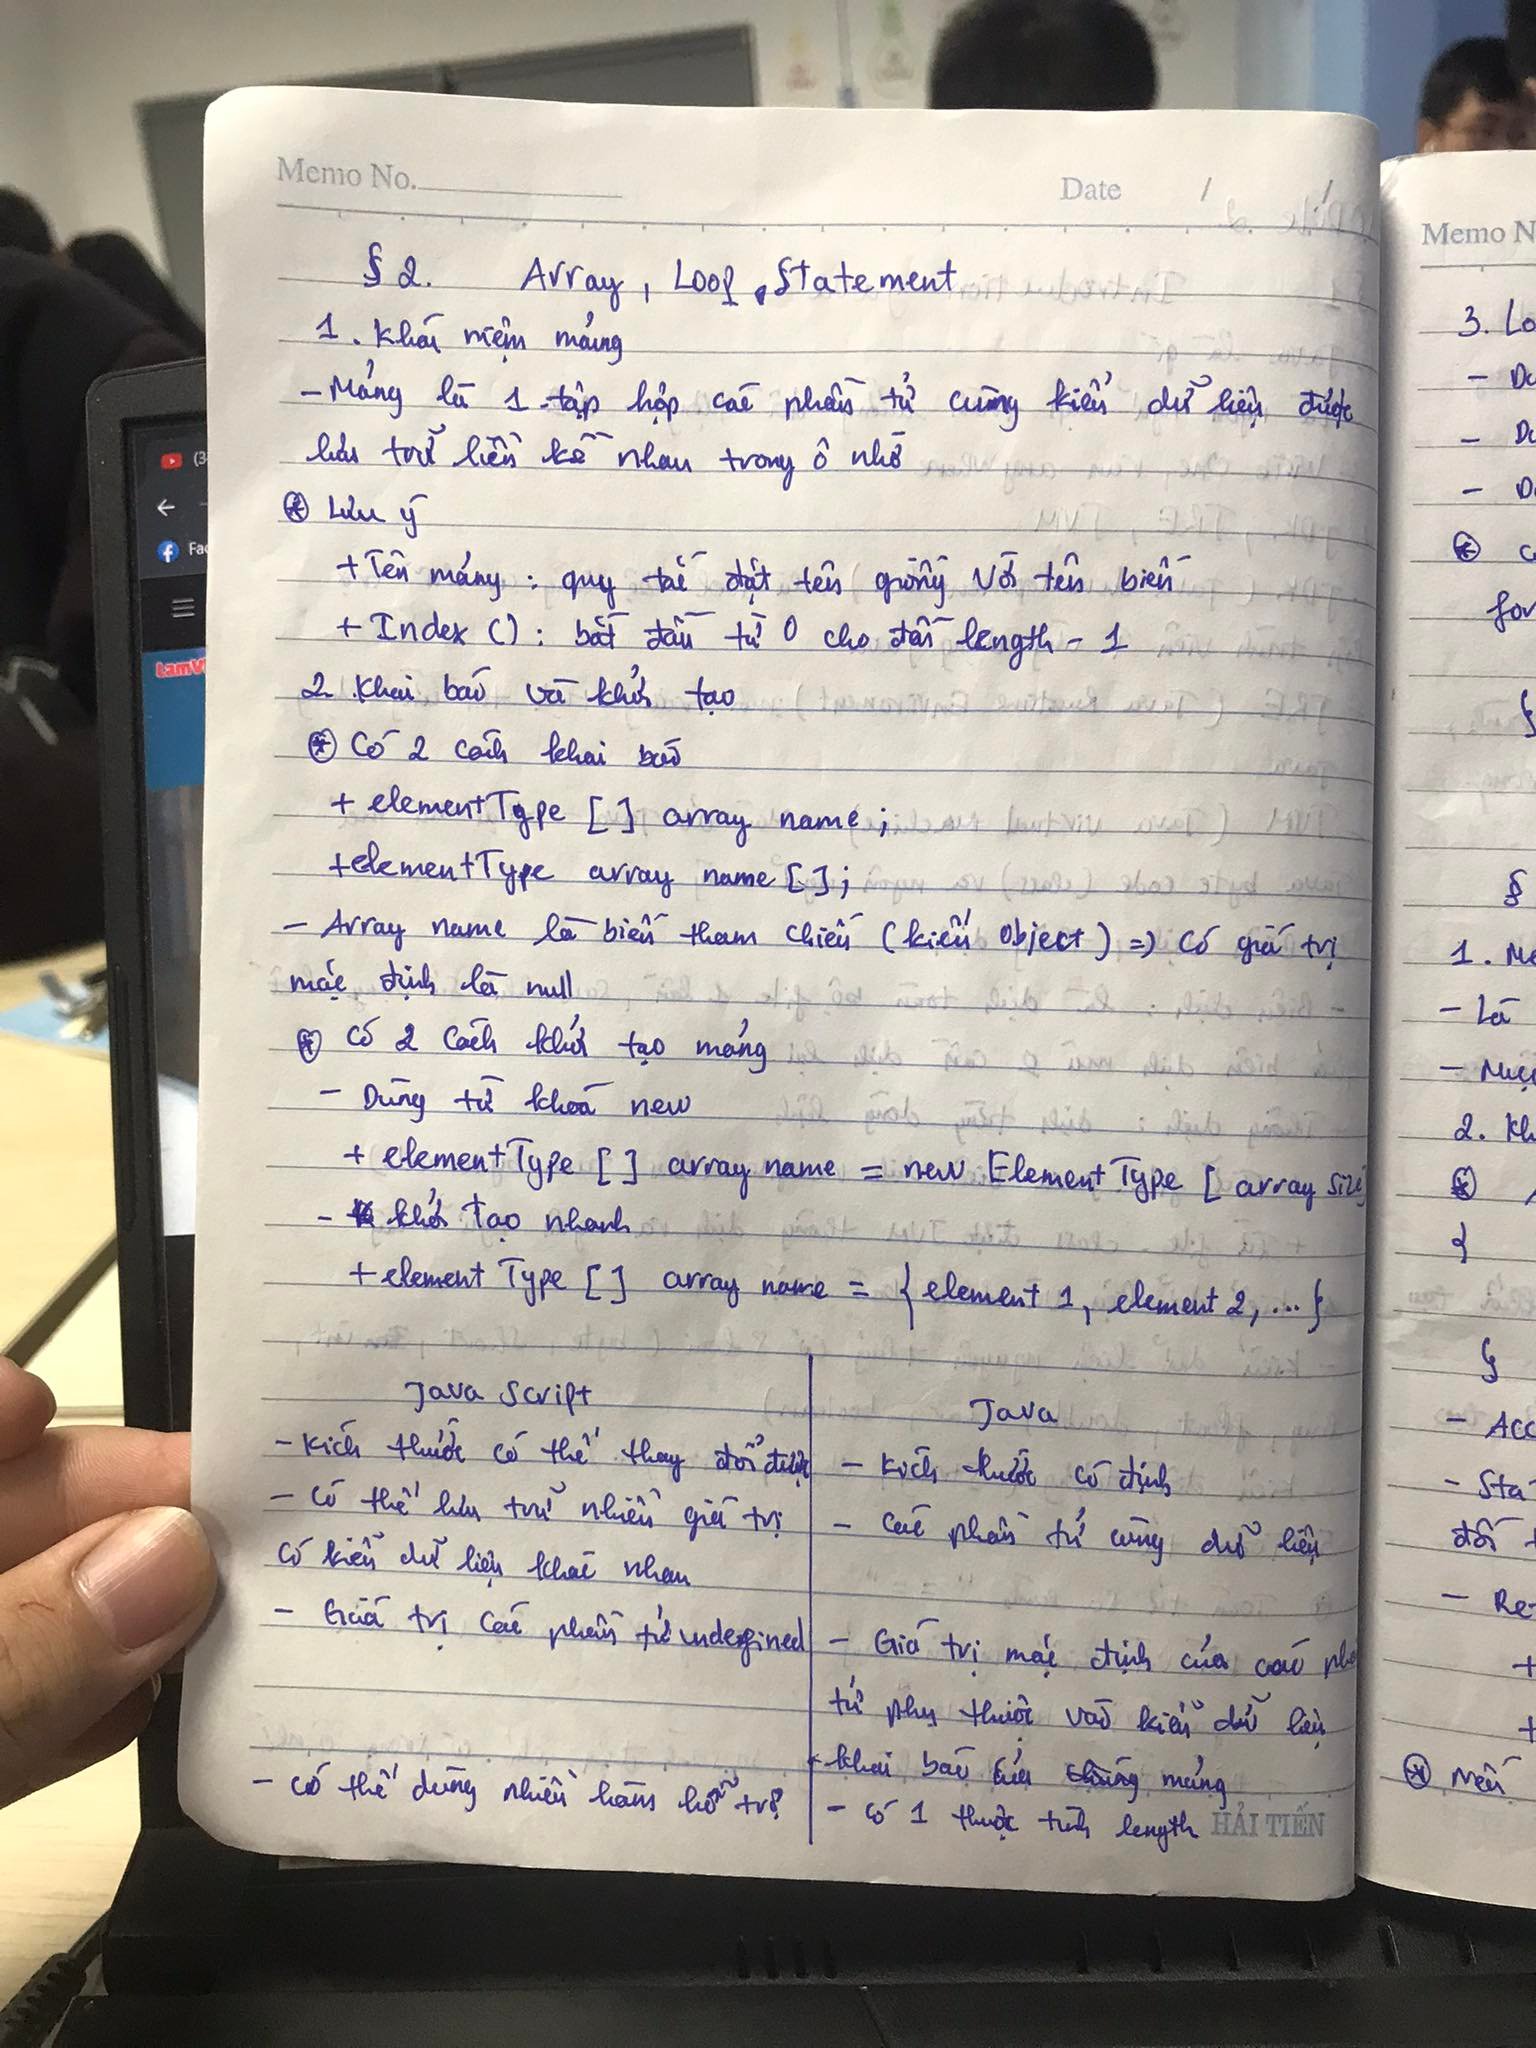 Memo No.
Date / /
§ 2. Array, Loop, Statement
1. Khái niệm mảng
- Mảng là 1 tập hợp các phần tử cùng kiểu dữ liệu được
lưu trữ liền kề nhau trong ô nhớ
* Lưu ý
+ Tên mảng : quy tắc đặt tên giống với tên biến
+ Index () : bắt đầu từ 0 cho đến length - 1
2. Khai báo và khởi tạo
* Có 2 cách khai báo
+ elementType [ ] array name ;
+ elementType array name [ ] ;
- Array name là biến tham chiếu (kiểu Object) => có giá trị
mặc định là null
* Có 2 cách khởi tạo mảng
- Dùng từ khoá new
+ elementType [ ] array name = new ElementType [ array size]
- khởi tạo nhanh
+ element Type [ ] array name = { element 1, element 2, ... }
Java Script
- Kích thước có thể thay đổi được
- Có thể lưu trữ nhiều giá trị
có kiểu dữ liệu khác nhau
- Giá trị các phần tử undefined
- có thể dùng nhiều hàm hỗ trợ
Java
- Kích thước cố định
- các phần tử cùng dữ liệu
- Giá trị mặc định của các phầ
tử phụ thuộc vào kiểu dữ liệu
khai báo của mảng
- có 1 thuộc tính length
HẢI TIẾN
Memo N
3. Lo
- Du
- Du
- Du
* C
for
}
§
1. Me
- Là
2. Kh
*
{
}
- Acc
- Sta
- Re
+
+
* Nếu